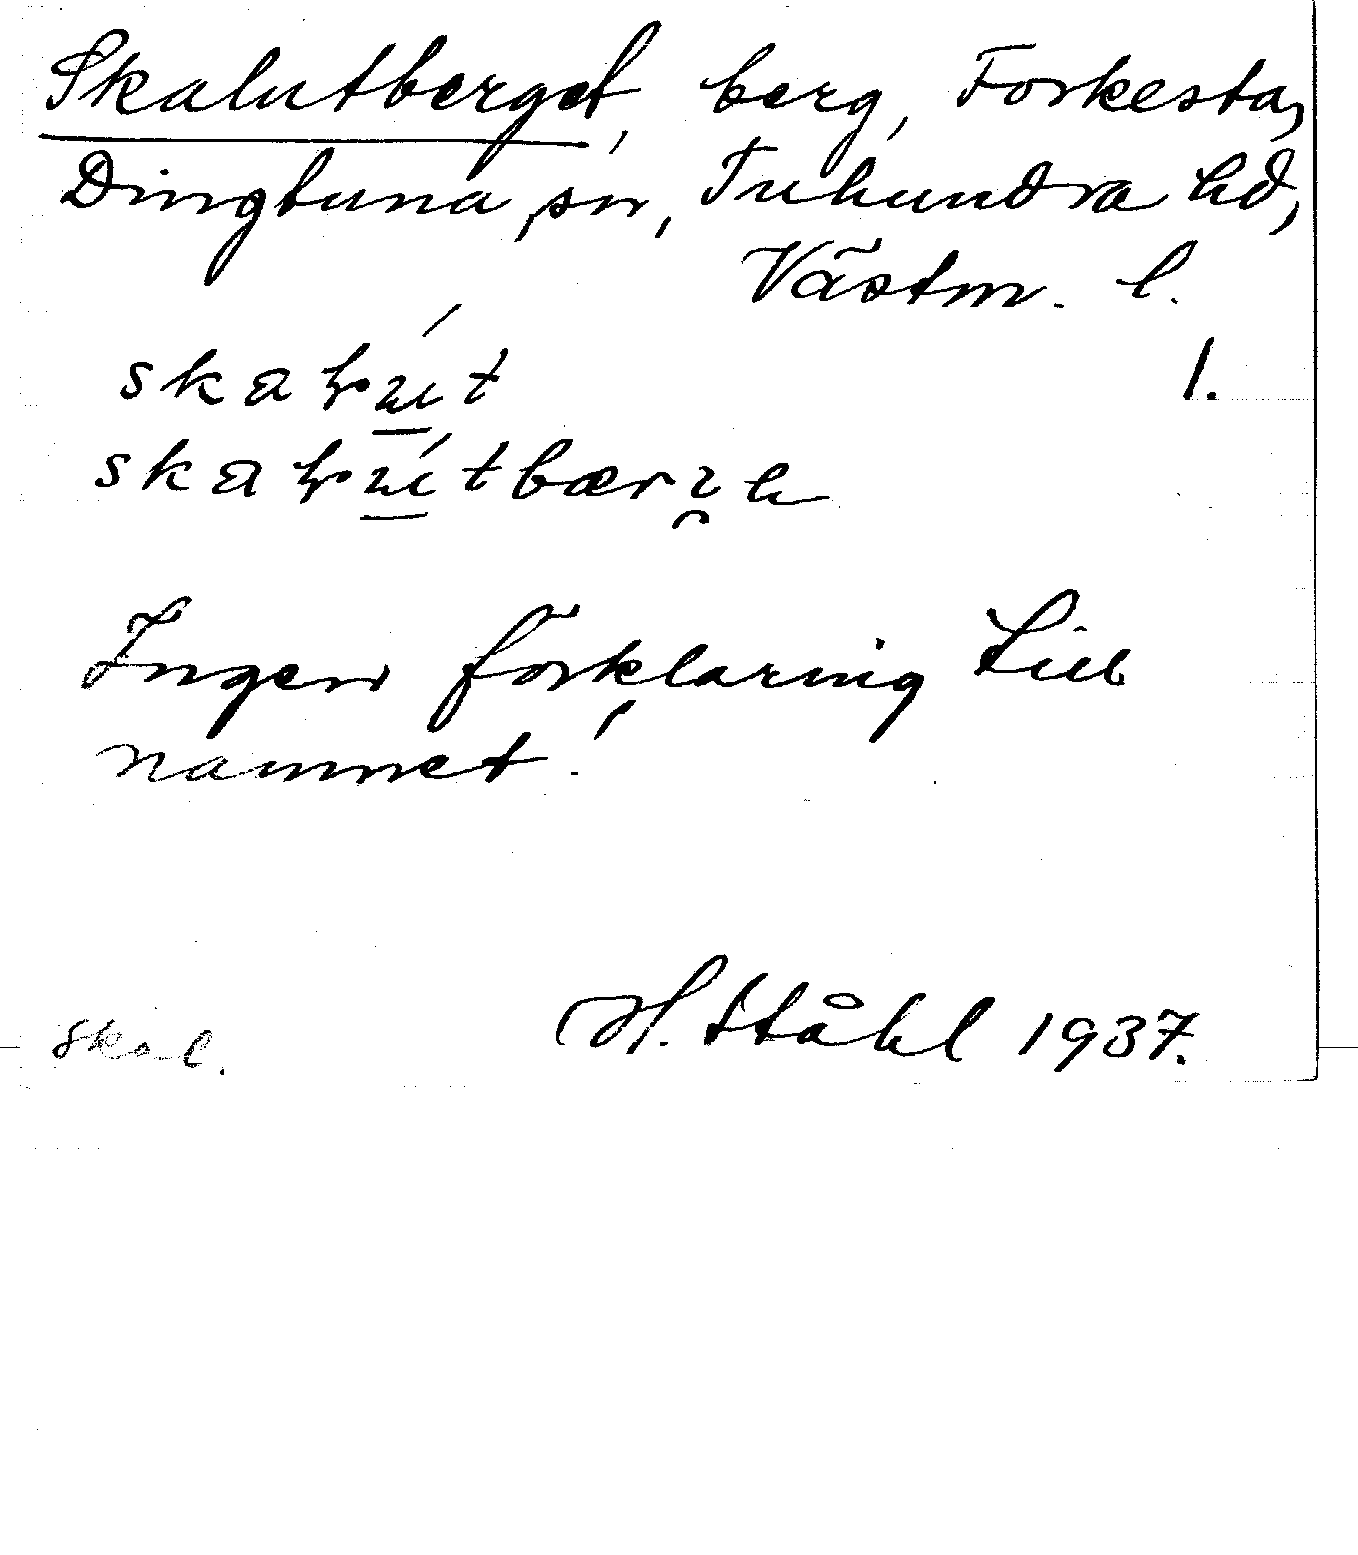 Skalutberget, berg, Forkesta,
Dingtuna sn, Tuhundra hd,
Västm. l.
1.
Ingen förklaring till
namnet!
Skal. H. Ståhl 1937.